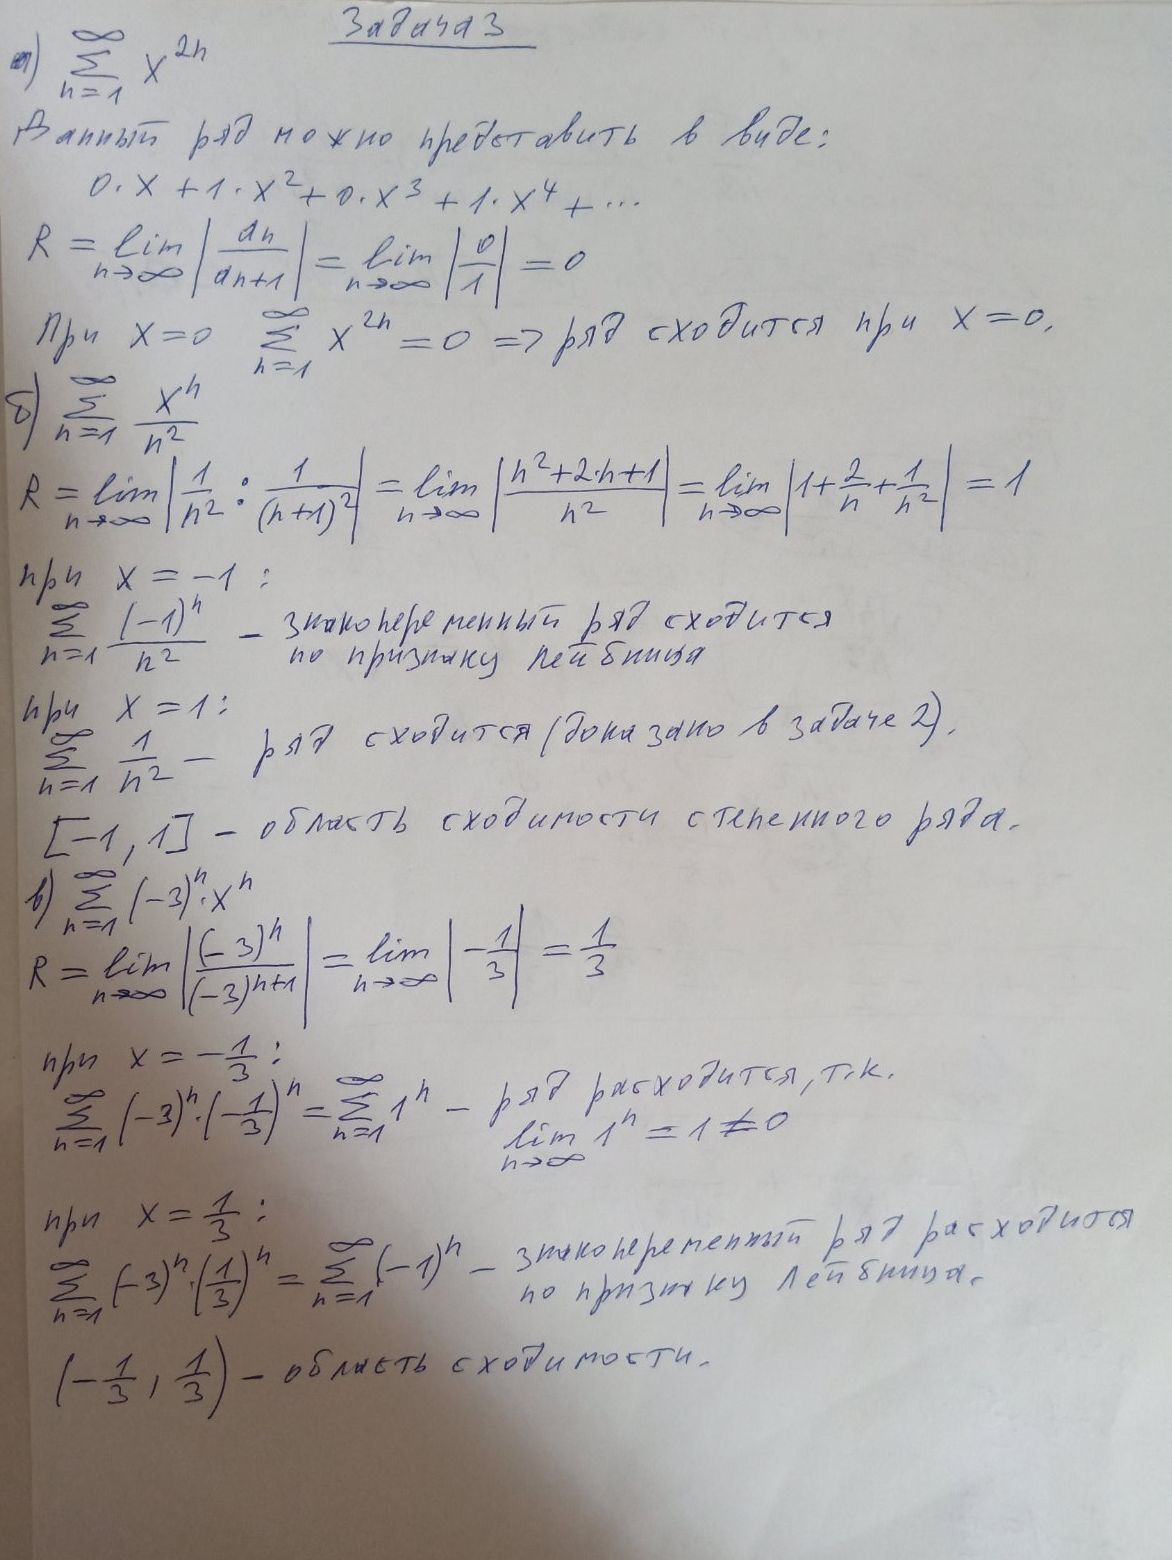 Задача 3
а) ∑_{n=1}^{∞} x^{2n}
Данный ряд можно представить в виде:
0·x + 1·x² + 0·x³ + 1·x⁴ + ...
R = lim_{n→∞} |a_n / a_{n+1}| = lim_{n→∞} |0/1| = 0
При x = 0 ∑_{n=1}^{∞} x^{2n} = 0 => ряд сходится при x = 0.
б) ∑_{n=1}^{∞} x^n / n²
R = lim_{n→∞} |1/n² : 1/(n+1)²| = lim_{n→∞} |(n²+2·n+1)/n²| = lim_{n→∞} |1 + 2/n + 1/n²| = 1
при x = -1 :
∑_{n=1}^{∞} (-1)^n / n² – знакопеременный ряд сходится
по признаку Лейбница
при x = 1 :
∑_{n=1}^{∞} 1/n² – ряд сходится (доказано в задаче 2).
[-1, 1] – область сходимости степенного ряда.
в) ∑_{n=1}^{∞} (-3)^n · x^n
R = lim_{n→∞} |(-3)^n / (-3)^{n+1}| = lim_{n→∞} |-1/3| = 1/3
при x = -1/3 :
∑_{n=1}^{∞} (-3)^n · (-1/3)^n = ∑_{n=1}^{∞} 1^n – ряд расходится, т.к.
lim_{n→∞} 1^n = 1 ≠ 0
при x = 1/3 :
∑_{n=1}^{∞} (-3)^n · (1/3)^n = ∑_{n=1}^{∞} (-1)^n – знакопеременный ряд расходится
по признаку Лейбница.
(-1/3, 1/3) – область сходимости.